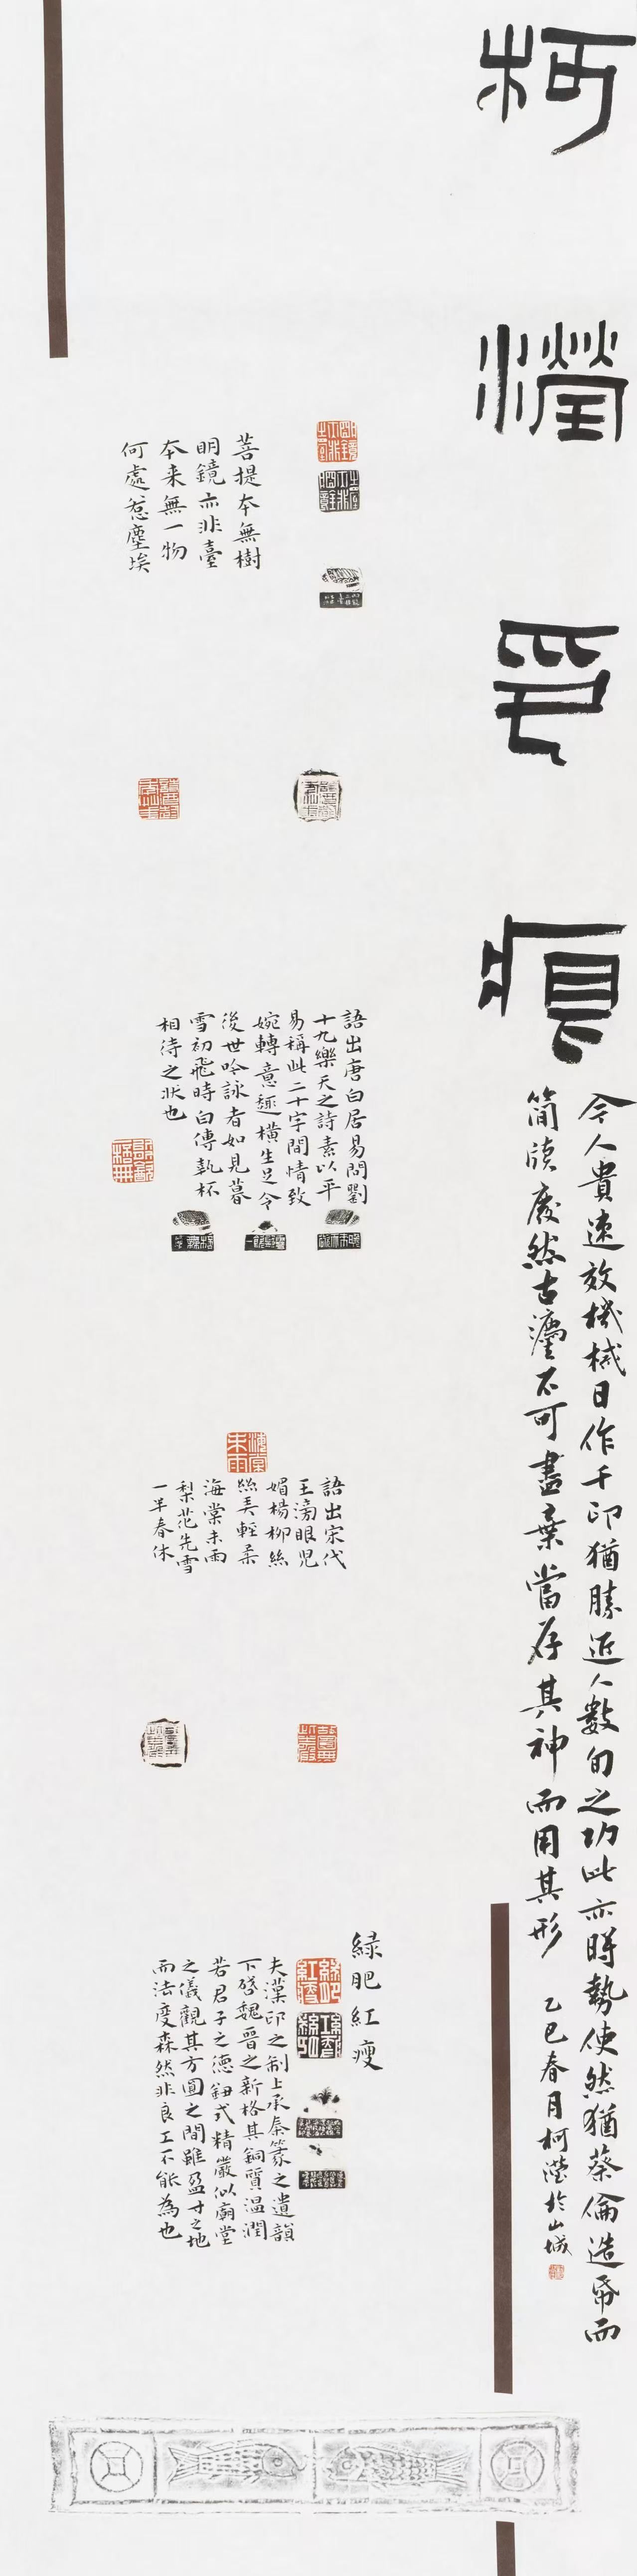 柯瀅印痕
今人貴速效機械日作千印猶勝近人數旬之功此亦時勢使然猶蔡倫造帋而
簡牘廢然古灋不可盡棄當存其神而用其形
乙巳春月柯瀅於山城
明鏡亦非臺
菩提本無樹
明鏡亦非臺
本来無一物
何處惹塵埃
語出唐白居易問劉
十九樂天之詩素以平
易稱此二十字間情致
婉轉意趣橫生足令
後世吟詠者如見暮
雪初飛時白傅執杯
相待之狀也
海棠未雨
語出宋代
王滂眼兒
媚楊柳絲
絲弄輕柔
海棠未雨
梨花先雪
一半春休
綠肥紅瘦
綠肥紅瘦
夫漢印之制上承秦篆之遺韻
下啓魏晉之新格其銅質溫潤
若君子之德鈕式精嚴似廟堂
之儀觀其方圓之間雖盈寸之地
而法度森然非良工不能為也